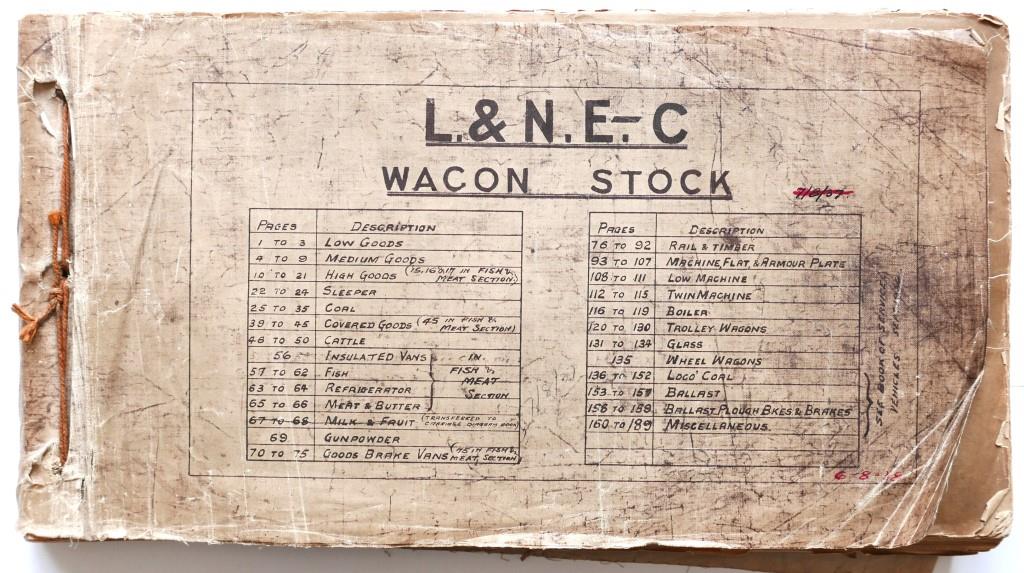 L. & N. E. - C
WAGON STOCK
7/8/37
PAGES DESCRIPTION
1 TO 3 LOW GOODS
4 TO 9 MEDIUM GOODS
10 TO 21 HIGH GOODS (15, 16 & 17 IN FISH & MEAT SECTION)
22 TO 24 SLEEPER
25 TO 35 COAL
39 TO 45 COVERED GOODS (45 IN FISH & MEAT SECTION)
46 TO 50 CATTLE
56 INSULATED VANS
57 TO 62 FISH
63 TO 64 REFRIGERATOR
65 TO 66 MEAT & BUTTER
IN FISH & MEAT SECTION
67 TO 68 MILK & FRUIT (TRANSFERRED TO CARRIAGE DIAGRAM BOOK)
69 GUNPOWDER
70 TO 75 GOODS BRAKE VANS (75 IN FISH & MEAT SECTION)
PAGES DESCRIPTION
76 TO 92 RAIL & TIMBER
93 TO 107 MACHINE, FLAT, & ARMOUR PLATE
108 TO 111 LOW MACHINE
112 TO 115 TWIN MACHINE
116 TO 119 BOILER
120 TO 130 TROLLEY WAGONS
131 TO 134 GLASS
135 WHEEL WAGONS
136 TO 152 LOCO' COAL
153 TO 157 BALLAST
158 TO 159 BALLAST PLOUGH BKES & BRAKES
160 TO 189 MISCELLANEOUS
SEE BOOK OF SERVICE
VEHICLES